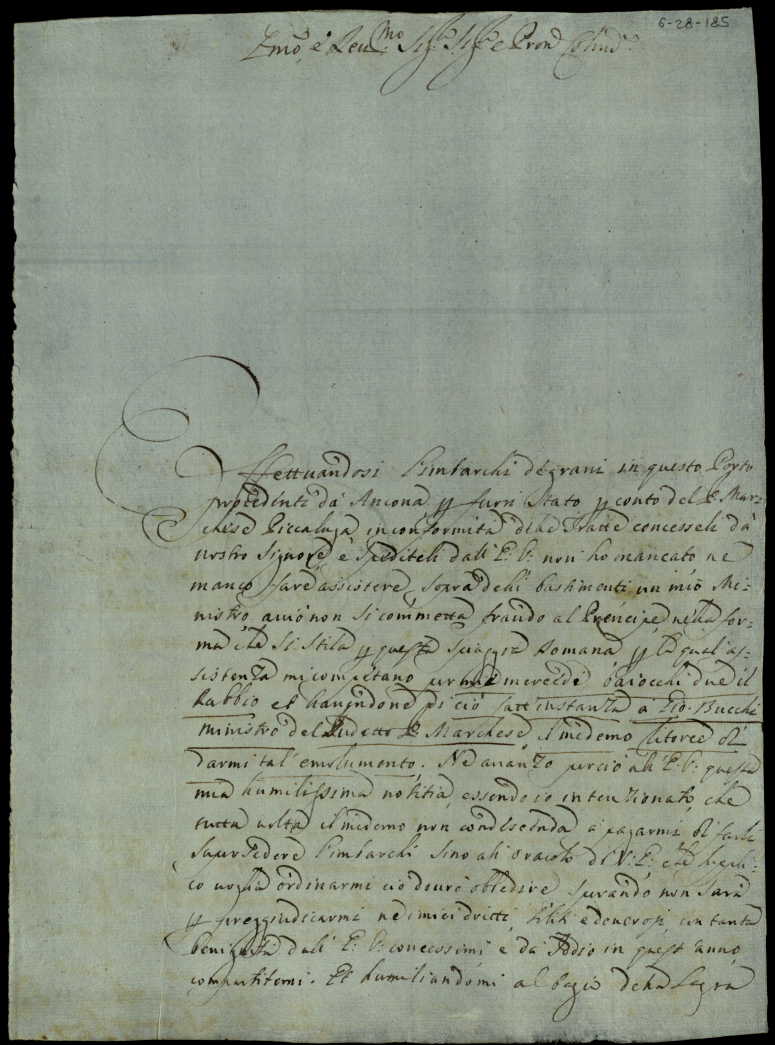 6-28-185
Emo, e Reu.mo Sig.r Sig.r e Pron Colmo
Effettuandosi l'imbarchi de grani in questo Porto
procedenti da Ancona, p fuori Stato p conto del S. Mar-
chese Piccaluga in conformità delle Tratte concesseli da
nostro Signore e spediteli dall'E: V: non ho mancato ne
manco fare assistere, sopra delli bastimenti un mio Mi-
nistro, acciò non si commetta fraudo al Prencipe nella for-
ma che si stila p questa spiaggia Romana p la qual as-
sistenza mi competano per mia mercede baiocchi due il
Rubbio et havendone p ciò fatt'instanza a Gio: Bucchi
ministro del sudetto S. Marchese, il medemo ritorce di
darmi tal'emolumento. Ne avanzo perciò all'E: V: questa
mia humilissima notitia, essendo io intenzionato, che
tutta volta il medemo non condescenda a pagarmi di farli
supersedere l'imbarchi sino all'oracolo di V: E: che suppli-
co voglia ordinarmi ciò dourò obbedire sperando non sarà
p preggiudicarmi ne i miei dritti, soliti e douerosi, con tanta
benignità dall'E: V: concessimi e da Iddio in quest'anno
compartitemi. Et humiliandomi al bagio della Sagra